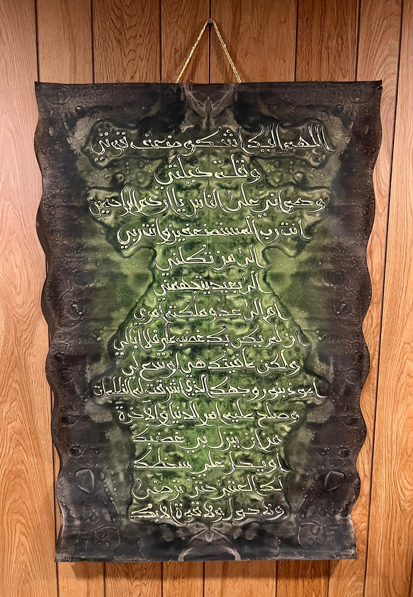 اللهم إليك أشكو ضعف قوتي
وقلة حيلتي
وهواني على الناس يا أرحم الراحمين
أنت رب المستضعفين وأنت ربي
إلى من تكلني
إلى بعيد يتجهمني
أم إلى عدو ملكته أمري
إن لم يكن بك غضب علي فلا أبالي
ولكن عافيتك هي أوسع لي
أعوذ بنور وجهك الذي أشرقت له الظلمات
وصلح عليه أمر الدنيا والآخرة
من أن ينزل بي غضبك
أو يحل علي سخطك
لك العتبى حتى ترضى
ولا حول ولا قوة إلا بك